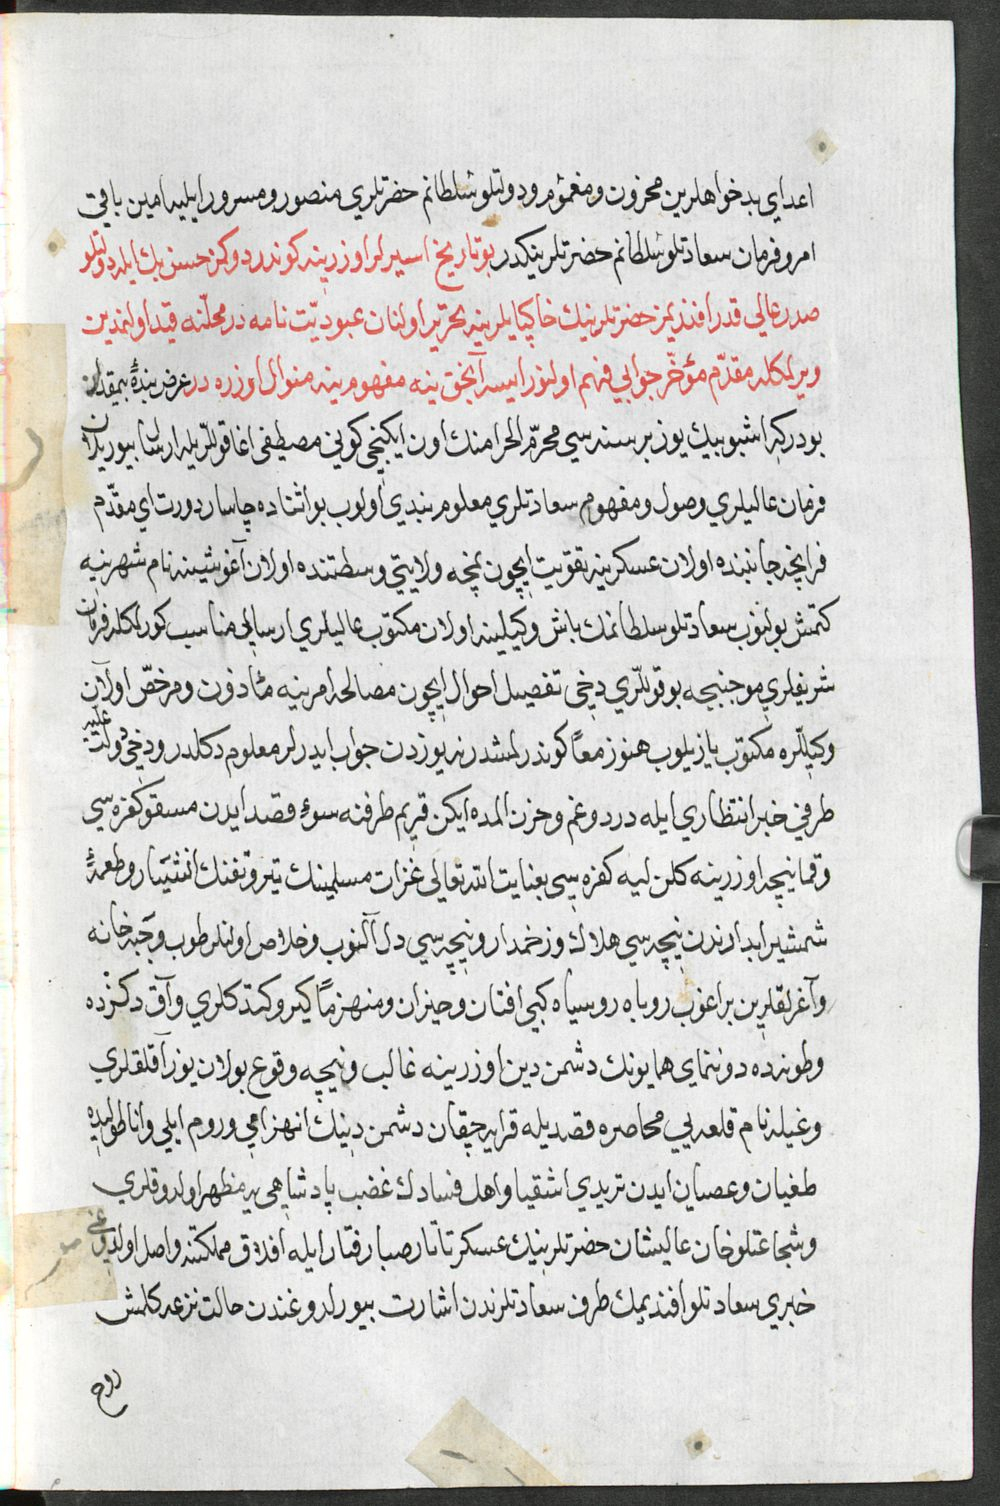 اعداي بدخواهلرين محزون ومغموم ودولتلو سلطانم حضرتلري منصور ومسرور ايليه امين باقي
امر وفرمان سعادتلو سلطانم حضرتلرينيكدر بو تاريخ اسيرلر اوزرينه كوندردوكز حسن بك ايله دولتلو
صدر عالي قدر افندمز حضرتلرينيك خاكپايلرينه تحرير اولنان عبوديّت نامه در محلّنه قيد اولنمدين
ويرلمكله مقدّم مؤخّر جوابي فهم اولنور ايسه آنجق ينه مفهومينه منوال اوزره در عرض بندهٔ بيمقدار
بودركه اشبو بيك يوز بر سنه سي محرّم الحرامنك اون ايكنجي كوني مصطفى اغا قوللريله ارسال بيوريلان
فرمان عاليلري وصول ومفهوم سعادتلري معلوم بندي اولوب بو اثناده چاسار دورت اي مقدّم
فرانچه جانبنده اولان عسكرينه تقويت ايچون نمچه ولايتي وسطنده اولان آغوشتينه نام شهرينه
كتمش بولنوب سعادتلو سلطانمك باش وكيلينه اولان مكتوب عاليلري ارسالي مناسب كورلمكله فرمان
شريفلري موجبنجه بو قوللري دخي تفصيل احوال ايچون مصالحه امرينه مأذون ومرخّص اولان
وكيللره مكتوب يازيلوب هنوز معًا كوندرلمشدر نه يوزدن جواب ايدرلر معلوم دكلدر ودخي دولت عليه
طرفي خبر انتظاري ايله درد وغم وحزن المده ايكن قريم طرفنه سوء قصد ايدن مسقو كفره سي
وقمانيچه اوزرينه كلن ليه كفره سي بعنايت الله تعالى غزات مسلمينك تير وتفنك انثيار وطعمهٔ
شمشير ابدارندن نيچه سي هلاك وزخمدار ونيچه سي دل آلنوب وخلاص اولنلر طوب وجبه خانه
وآغرلقلرين براغوب روباه روسياه كبي افتان وخيزان ومنهزمًا كيرو كتدكلري وآق دكزده
وطونه ده دوننماي همايونك دشمن دين اوزرينه غالب ونيچه وقوع بولان يوز آقلقلري
وغيله نام قلعه يي محاصره قصديله قرايه چقان دشمن دينك انهزامي وروم ايلي واناطوليده
طغيان وعصيان ايدن تريدي اشقيا واهل فسادك غضب پادشاهي يه مظهر اولدوقلري
وشجاعتلو خان عاليشان حضرتلرينيك عسكر تاتار صبا رفتار ايله افلاق مملكتنه واصل اولدوغي
خبري سعادتلو افنديمك طرف سعادتلرندن اشارت بيورلدوغندن حالت نزعه كلمش
روح